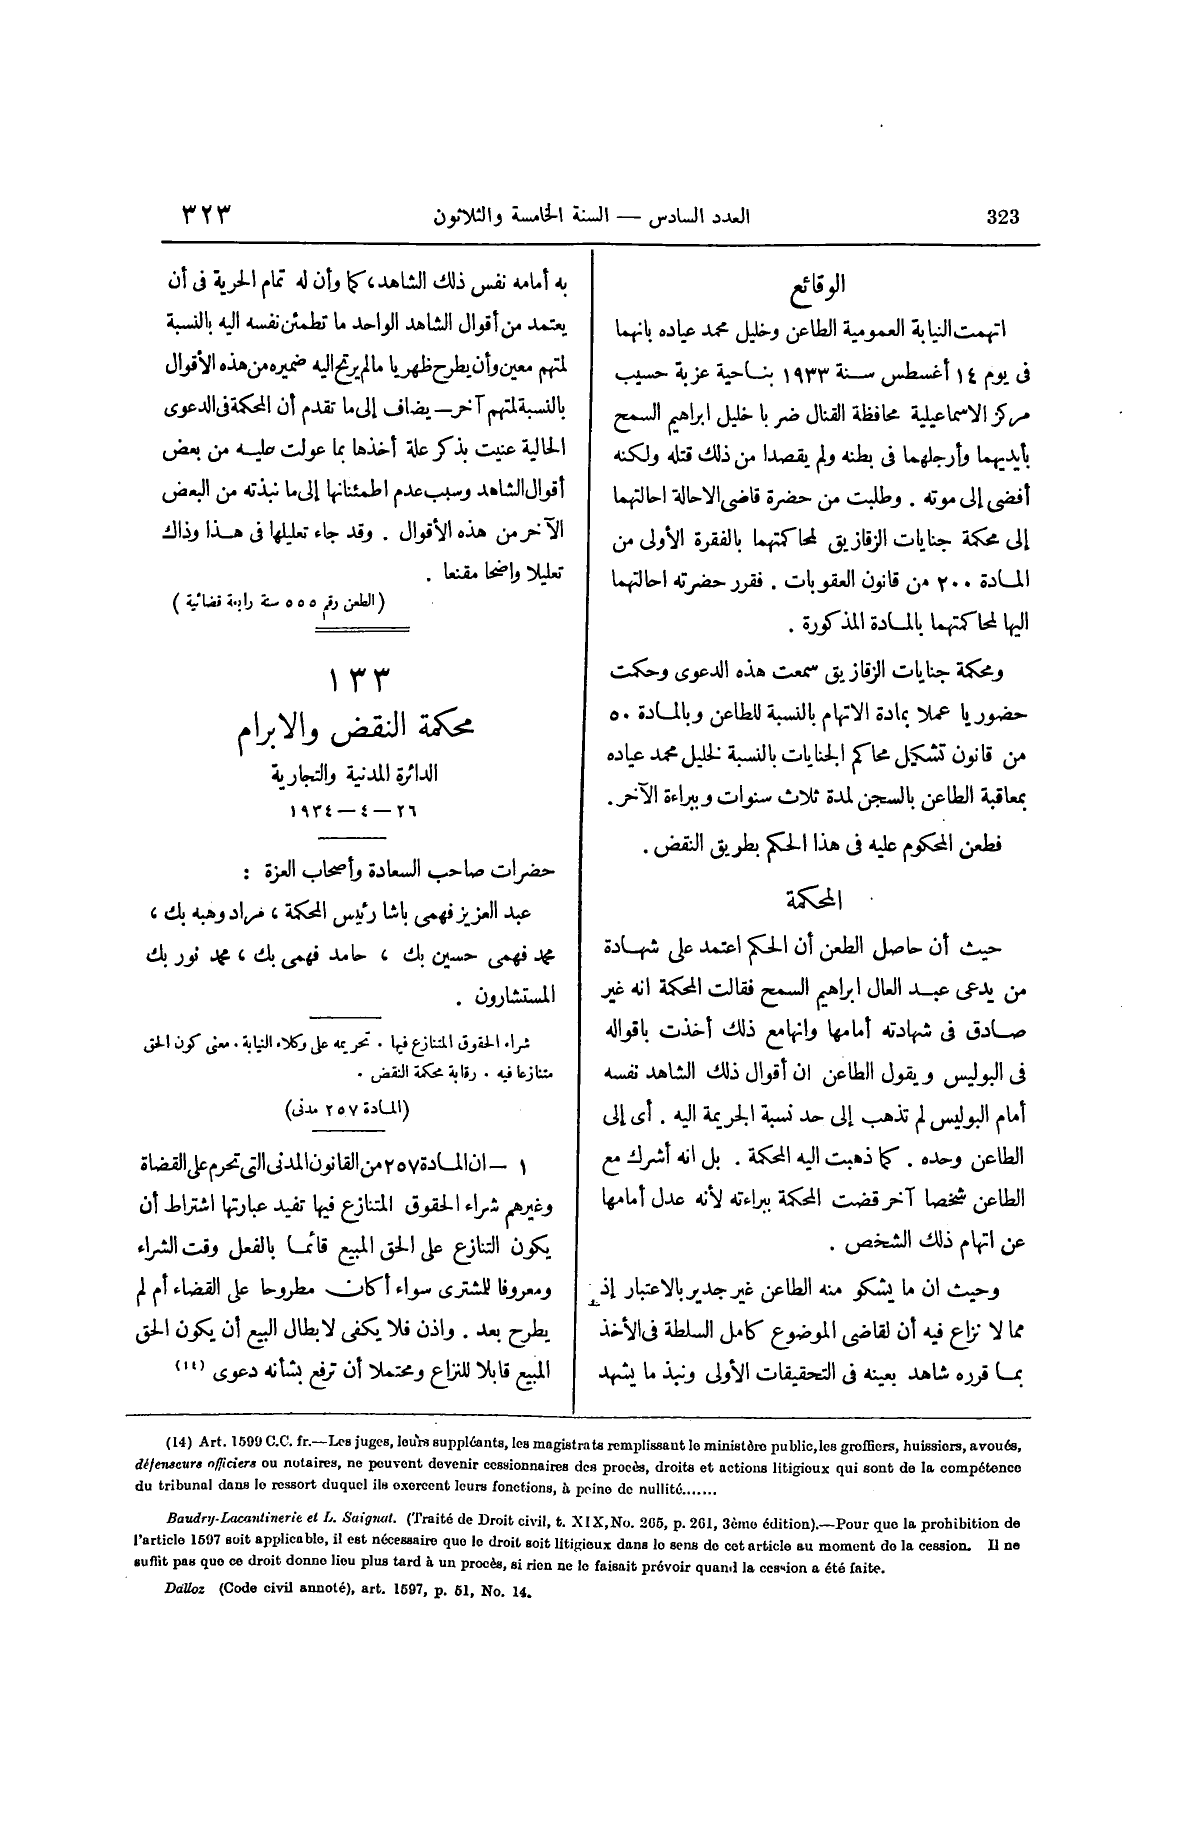 323
العدد السادس — السنة الخامسة والثلاثون
٣٢٣
الوقائع
اتهمت النيابة العمومية الطاعن وخليل محمد عياده بانهما
فى يوم ١٤ أغسطس سنة ١٩٣٣ بناحية عزبة حسيب
مركز الاسماعيلية محافظة القنال ضربا خليل ابراهيم السمح
بأيديهما وأرجلهما فى بطنه ولم يقصدا من ذلك قتله ولكنه
أفضى إلى موته . وطلبت من حضرة قاضى الاحالة احالتهما
إلى محكمة جنايات الزقازيق لمحاكمتهما بالفقرة الأولى من
المادة ٢٠٠ من قانون العقوبات . فقرر حضرته احالتهما
اليها لمحاكمتهما بالمادة المذكورة .
ومحكمة جنايات الزقازيق سمعت هذه الدعوى وحكمت
حضوريا عملا بمادة الاتهام بالنسبة للطاعن وبالمادة ٥٠
من قانون تشكيل محاكم الجنايات بالنسبة لخليل محمد عياده
بمعاقبة الطاعن بالسجن لمدة ثلاث سنوات وببراءة الآخر.
فطعن المحكوم عليه فى هذا الحكم بطريق النقض .
المحكمة
حيث أن حاصل الطعن أن الحكم اعتمد على شهادة
من يدعى عبد العال ابراهيم السمح فقالت المحكمة انه غير
صادق فى شهادته أمامها وانها مع ذلك أخذت باقواله
فى البوليس ويقول الطاعن ان أقوال ذلك الشاهد نفسه
أمام البوليس لم تذهب إلى حد نسبة الجريمة اليه . أى إلى
الطاعن وحده . كما ذهبت اليه المحكمة . بل انه أشرك مع
الطاعن شخصا آخر قضت المحكمة ببراءته لأنه عدل أمامها
عن اتهام ذلك الشخص .
وحيث ان ما يشكو منه الطاعن غير جدير بالاعتبار إذ
مما لا نزاع فيه أن لقاضى الموضوع كامل السلطة فى الأخذ
بما قرره شاهد بعينه فى التحقيقات الأولى ونبذ ما يشهد
به أمامه نفس ذلك الشاهد، كما وأن له تمام الحرية فى أن
يعتمد من أقوال الشاهد الواحد ما تطمئن نفسه اليه بالنسبة
لمتهم معين وأن يطرح ظهريا مالم يرتح اليه ضميره من هذه الأقوال
بالنسبة لمتهم آخر — يضاف إلى ما تقدم أن المحكمة فى الدعوى
الحالية عنيت بذكر علة أخذها بما عولت عليه من بعض
أقوال الشاهد وسبب عدم اطمئنانها إلى ما نبذته من البعض
الآخر من هذه الأقوال . وقد جاء تعليلها فى هذا وذاك
تعليلا واضحا مقنعا .
(الطعن رقم ٥٥٥ سنة رابعة قضائية)
١٣٣
محكمة النقض والابرام
الدائرة المدنية والتجارية
٢٦ — ٤ — ١٩٣٤
حضرات صاحب السعادة وأصحاب العزة :
عبد العزيز فهمى باشا رئيس المحكمة ، مراد وهبه بك ،
محمد فهمى حسين بك ، حامد فهمى بك ، محمد نور بك
المستشارون .
شراء الحقوق المتنازع فيها . تحريمه على وكلاء النيابة . معنى كون الحق
متنازعا فيه . رقابة محكمة النقض .
(المادة ٢٥٧ مدنى)
١ — ان المادة ٢٥٧ من القانون المدنى التى تحرم على القضاة
وغيرهم شراء الحقوق المتنازع فيها تفيد عبارتها اشتراط أن
يكون التنازع على الحق المبيع قائما بالفعل وقت الشراء
ومعروفا للمشترى سواء أكان مطروحا على القضاء أم لم
يطرح بعد . واذن فلا يكفى لابطال البيع أن يكون الحق
المبيع قابلا للنزاع ومحتملا أن ترفع بشأنه دعوى (١٤)
(14) Art. 1599 C.C. fr.—Les juges, leurs suppléants, les magistrats remplissant le ministère public, les greffiers, huissiers, avoués,
défenseurs officiers ou notaires, ne peuvent devenir cessionnaires des procès, droits et actions litigieux qui sont de la compétence
du tribunal dans le ressort duquel ils exercent leurs fonctions, à peine de nullité.......
Baudry-Lacantinerie et L. Saignat. (Traité de Droit civil, t. XIX, No. 265, p. 261, 3ème édition).—Pour que la prohibition de
l'article 1597 soit applicable, il est nécessaire que le droit soit litigieux dans le sens de cet article au moment de la cession. Il ne
suffit pas que ce droit donne lieu plus tard à un procès, si rien ne le faisait prévoir quand la cession a été faite.
Dalloz (Code civil annoté), art. 1597, p. 51, No. 14.